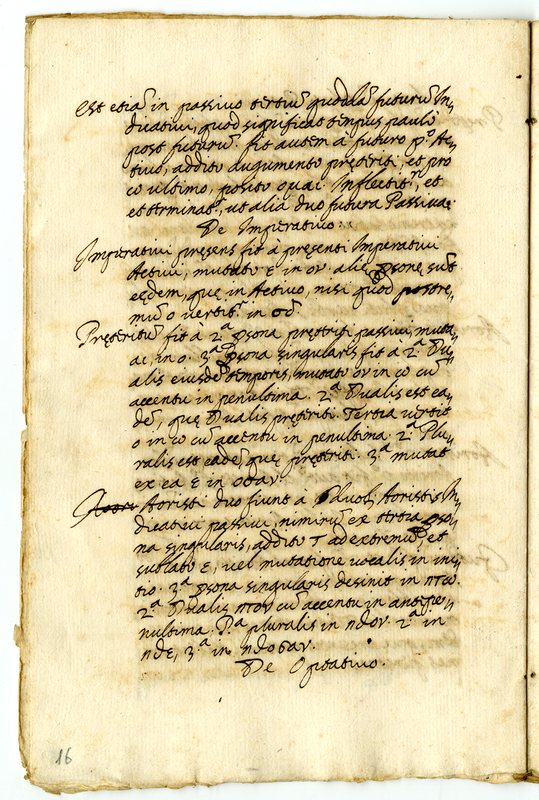 Est etiã in passivo tertiũ quoddã futurũ In„
dicativi, quod significat tempus paulò
post futurũ. fit autem à futuro pº Ac„
tivo, addito augumento pręteriti, et pro
ω ultimo, posito ομαι. Inflectitʳ, et
et terminatʳ, ut alia duo futura Passivae.
De Imperativo:
Imperativi pręsens fit à pręsenti Imperativi
Activi, mutato ε in ου. alię psonę sũt
eędem, quę in Activo, nisi quod postre„
mũ o vertitʳ in σθ
Pręteritũ fit à 2ª psona pręteriti passivi, muta„
αι, in o. 3ª psona singularis fit à 2ª Du„
alis eiusdẽ temporis, mutato ον in ω cũ
accentu in penultima. 2ª Dualis est ea„
dẽ, quę Dualis pręteriti. Tertia vertit
o in ω cũ accentu in penultima. 2ª Plu„
ralis est eadẽ, quę pręteriti. 3ª mutat
ex ea ε in ωσαν.
Aoristi duo fiunt à Aoristis In„
dicativi passivi, nimirũ ex tertia pso„
na singularis, addito τ ad extremũ, et
sublato ε, vel mutatione vocalis in ini„
tio. 3ª psona singularis desinit in ητω.
2ª Dualis ητον cũ accentu in antepe„
nultima. Pª pluralis in ηδον. 2ª in
ηδε, 3ª in ηδοσαν.
De Optativo.
16